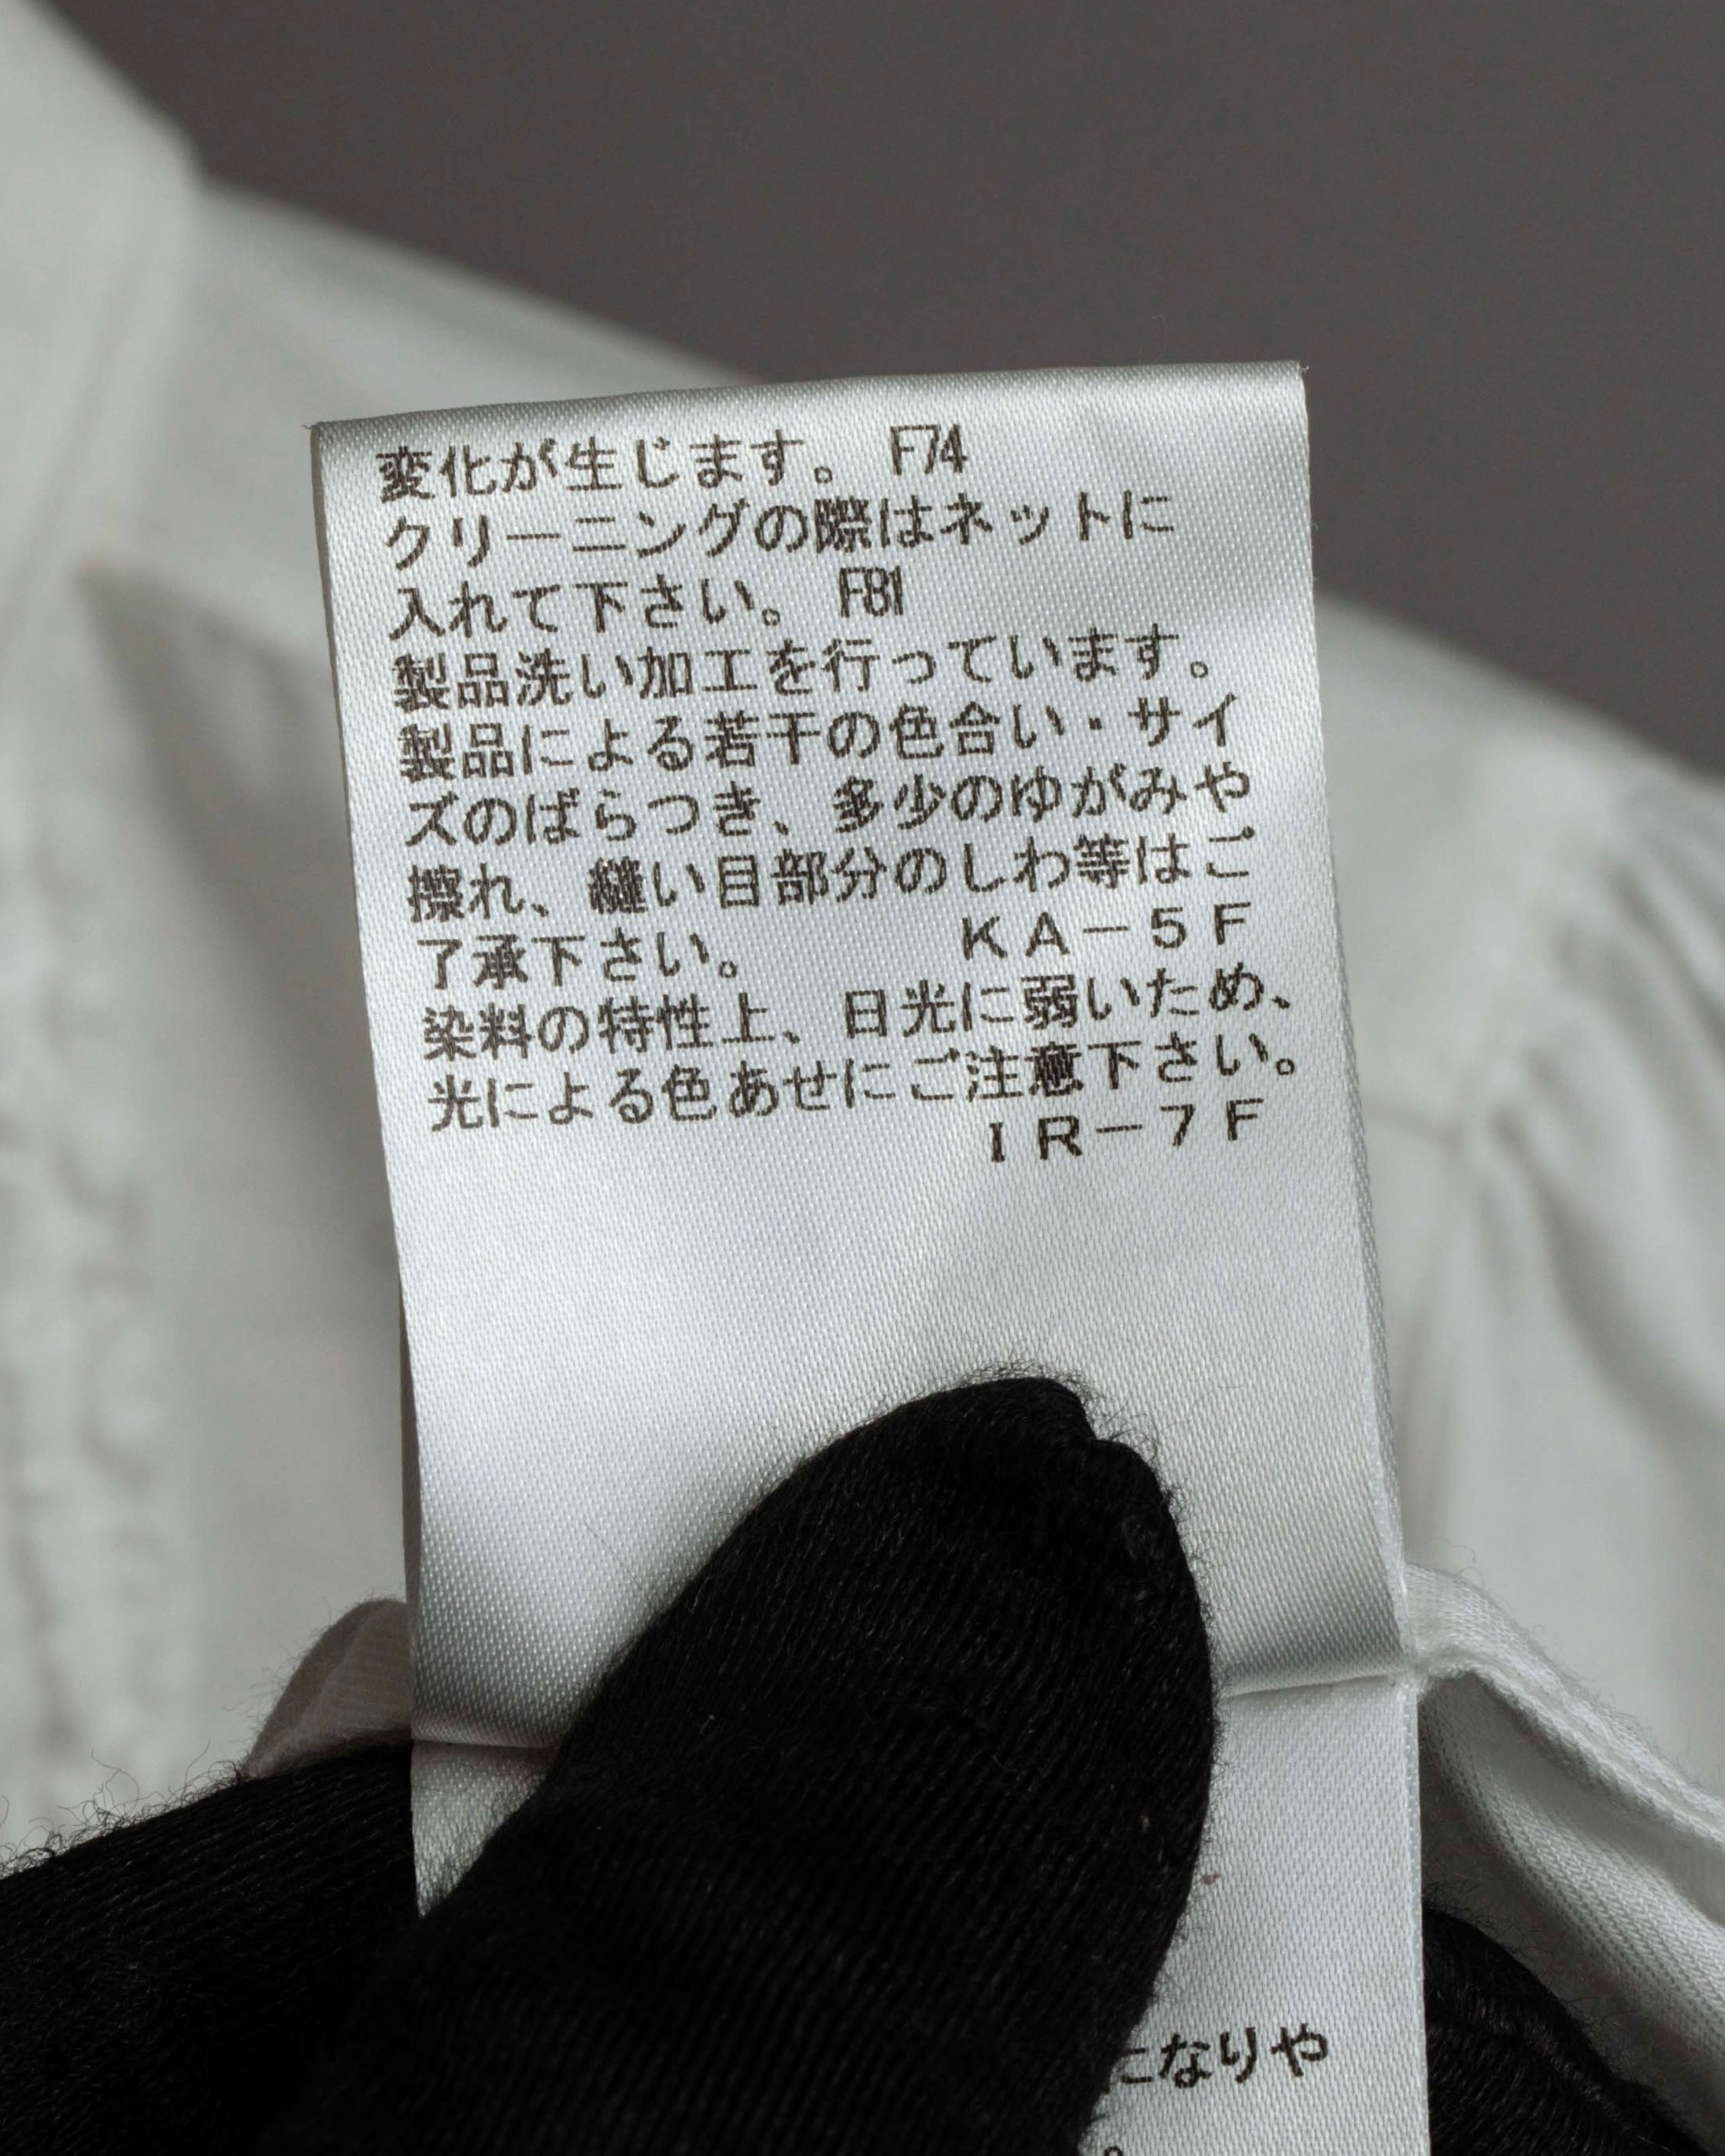 変化が生じます。 F74
クリーニングの際はネットに
入れて下さい。 F81
製品洗い加工を行っています。
製品による若干の色合い・サイ
ズのばらつき、多少のゆがみや
擦れ、縫い目部分のしわ等はご
了承下さい。 KA－5F
染料の特性上、日光に弱いため、
光による色あせにご注意下さい。
IR－7F
になりや
。